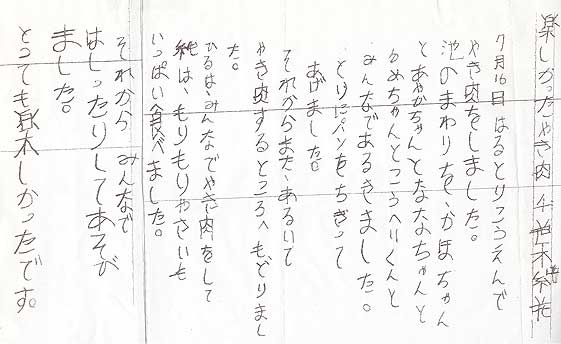 楽しかったやき肉
7月16日はるとりこうえんで
やき肉をしました。
池のまわりを、かほちゃん
とあやかちゃんとななちゃんと
かめちゃんとこうへいくんと
みんなであるきました。
とりにパンをちぎって
あげました。
それからまた、あるいて
やき肉するところへもどりまし
た。
ひるは、みんなでやき肉をして
純は、もりもりやさいも
いっぱい食べました。
それからみんなで
はしったりしてあそび
ました。
とっても楽しかったです。